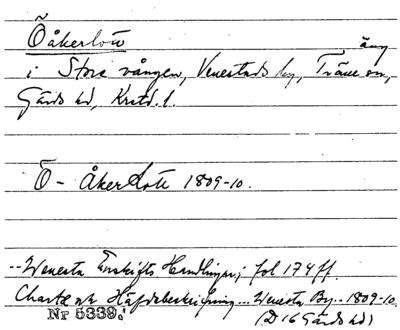 Öåkerlott
äng
i Stora vången, Venestads by, Träne sn,
Gärds hd, Krstd. l.
Ö- Åker Lott 1809-10.
--Wenesta Enskifts Handlingar; fol 174 ff.
Charta och Häfdebeskrifning... Wenesta By.. 1809-10.
Nr 5339.
(D16 Gärds hd)